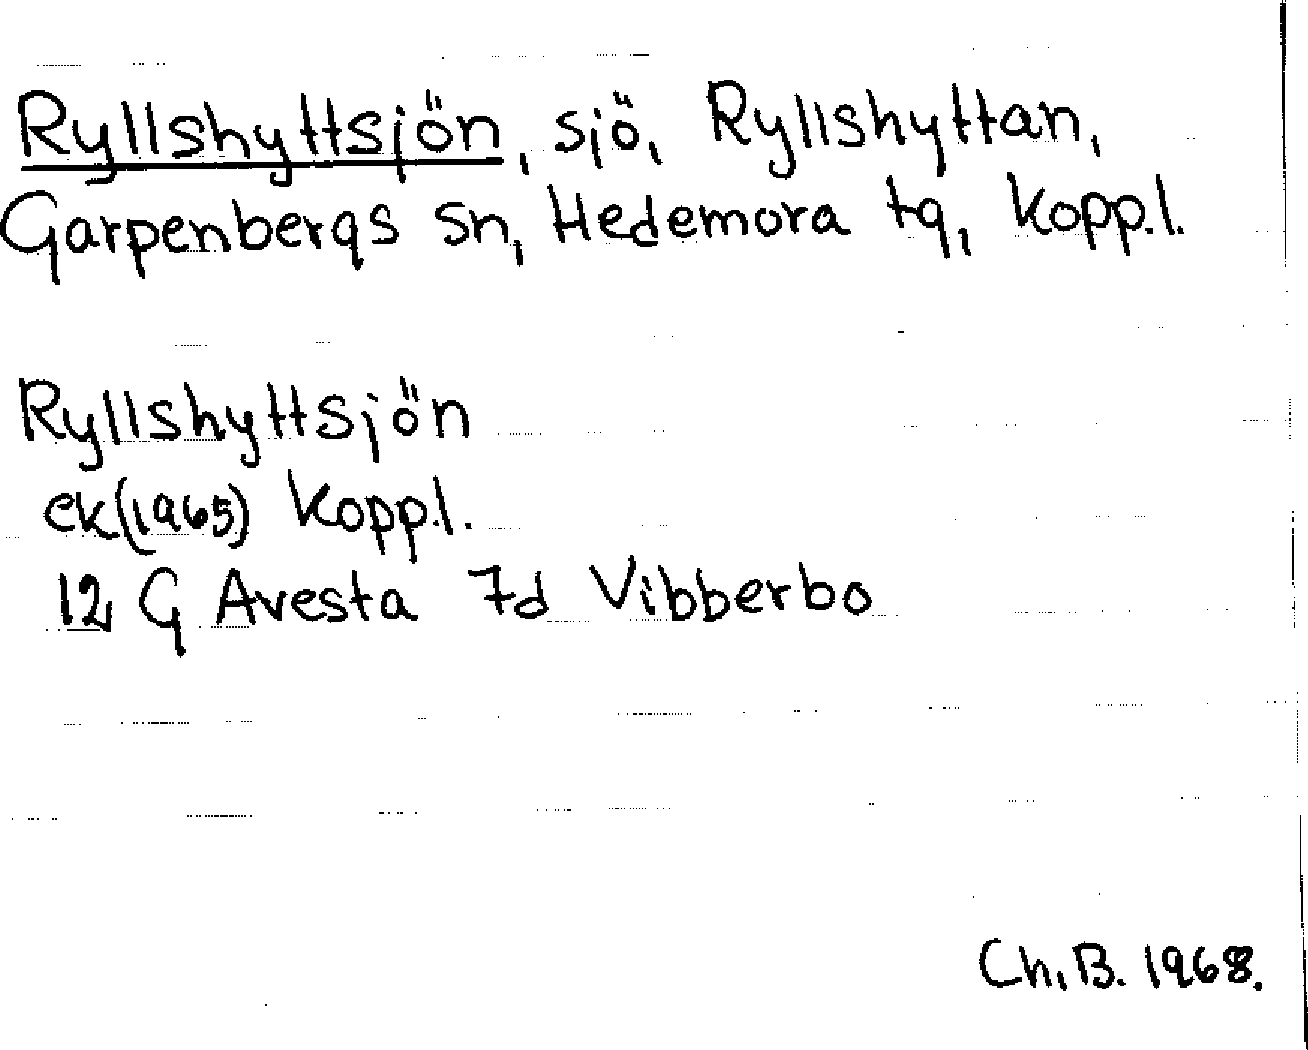 Ryllshyttsjön, sjö, Ryllshyttan,
Garpenbergs sn, Hedemora tg, Kopp.l.
Ryllshyttsjön
ek(1965) Kopp.l.
12 G Avesta 7d Vibberbo
Ch.B. 1968.